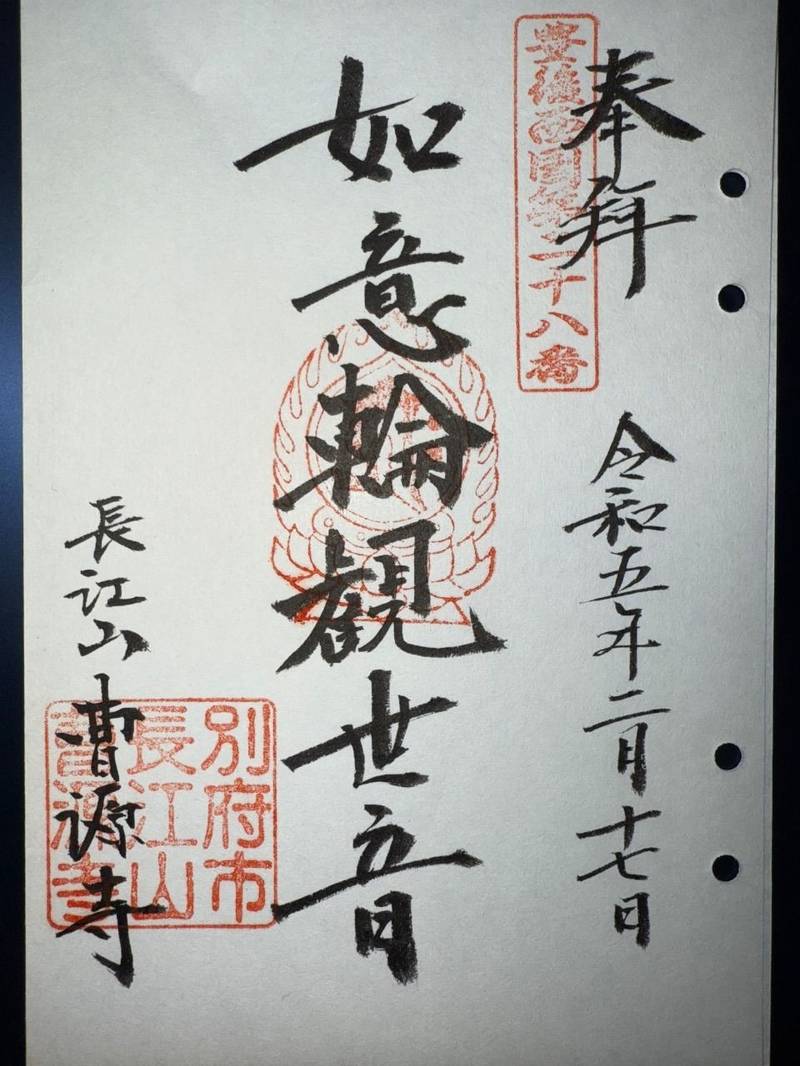 奉拝
豊後西國第二十八番
令和五年二月十七日
如意輪観世音
長江山 曹源寺
別府市
長江山
曹源寺